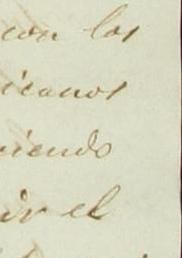 con los
icanos
niendo
ir el